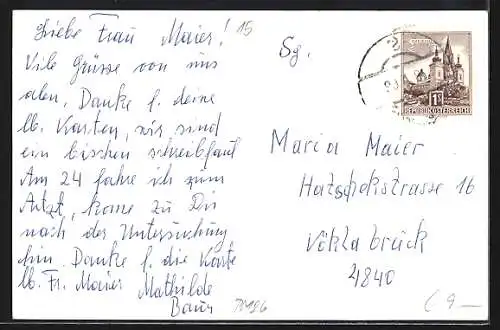 Liebe Frau Maier! 15
Vile Grüsse von uns
alen, Danke f. deine
lb. Karten, wir sind
ein bischen schreibfaul
Am 24 fahre ich zum
Artzt, kome zu Dir
nach der Untersuchung
hin. Danke f. die Karte
lb. Fr. Maier Mathilde
Baur
Sg.
Maria Maier
Hatschekstrasse 16
Vöklabruck
4840
1S
REPUBLIK ÖSTERREICH
9-